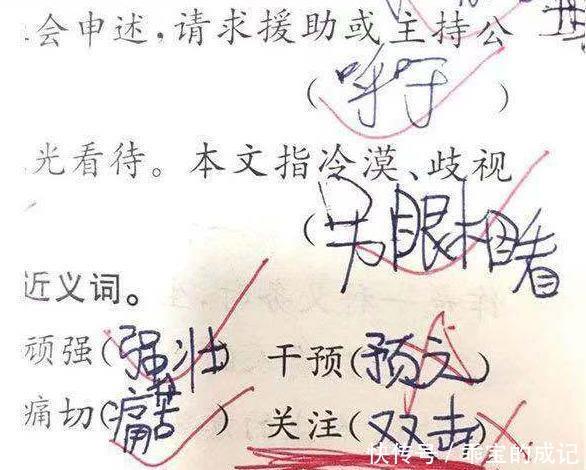 会申述，请求援助或主持公
（呼吁）
光看待。本文指冷漠、歧视
（另眼相看
近义词。
顽强（强壮）　干预（预文）
痛切（痛苦）　关注（双击）
快传号／乖宝的成记